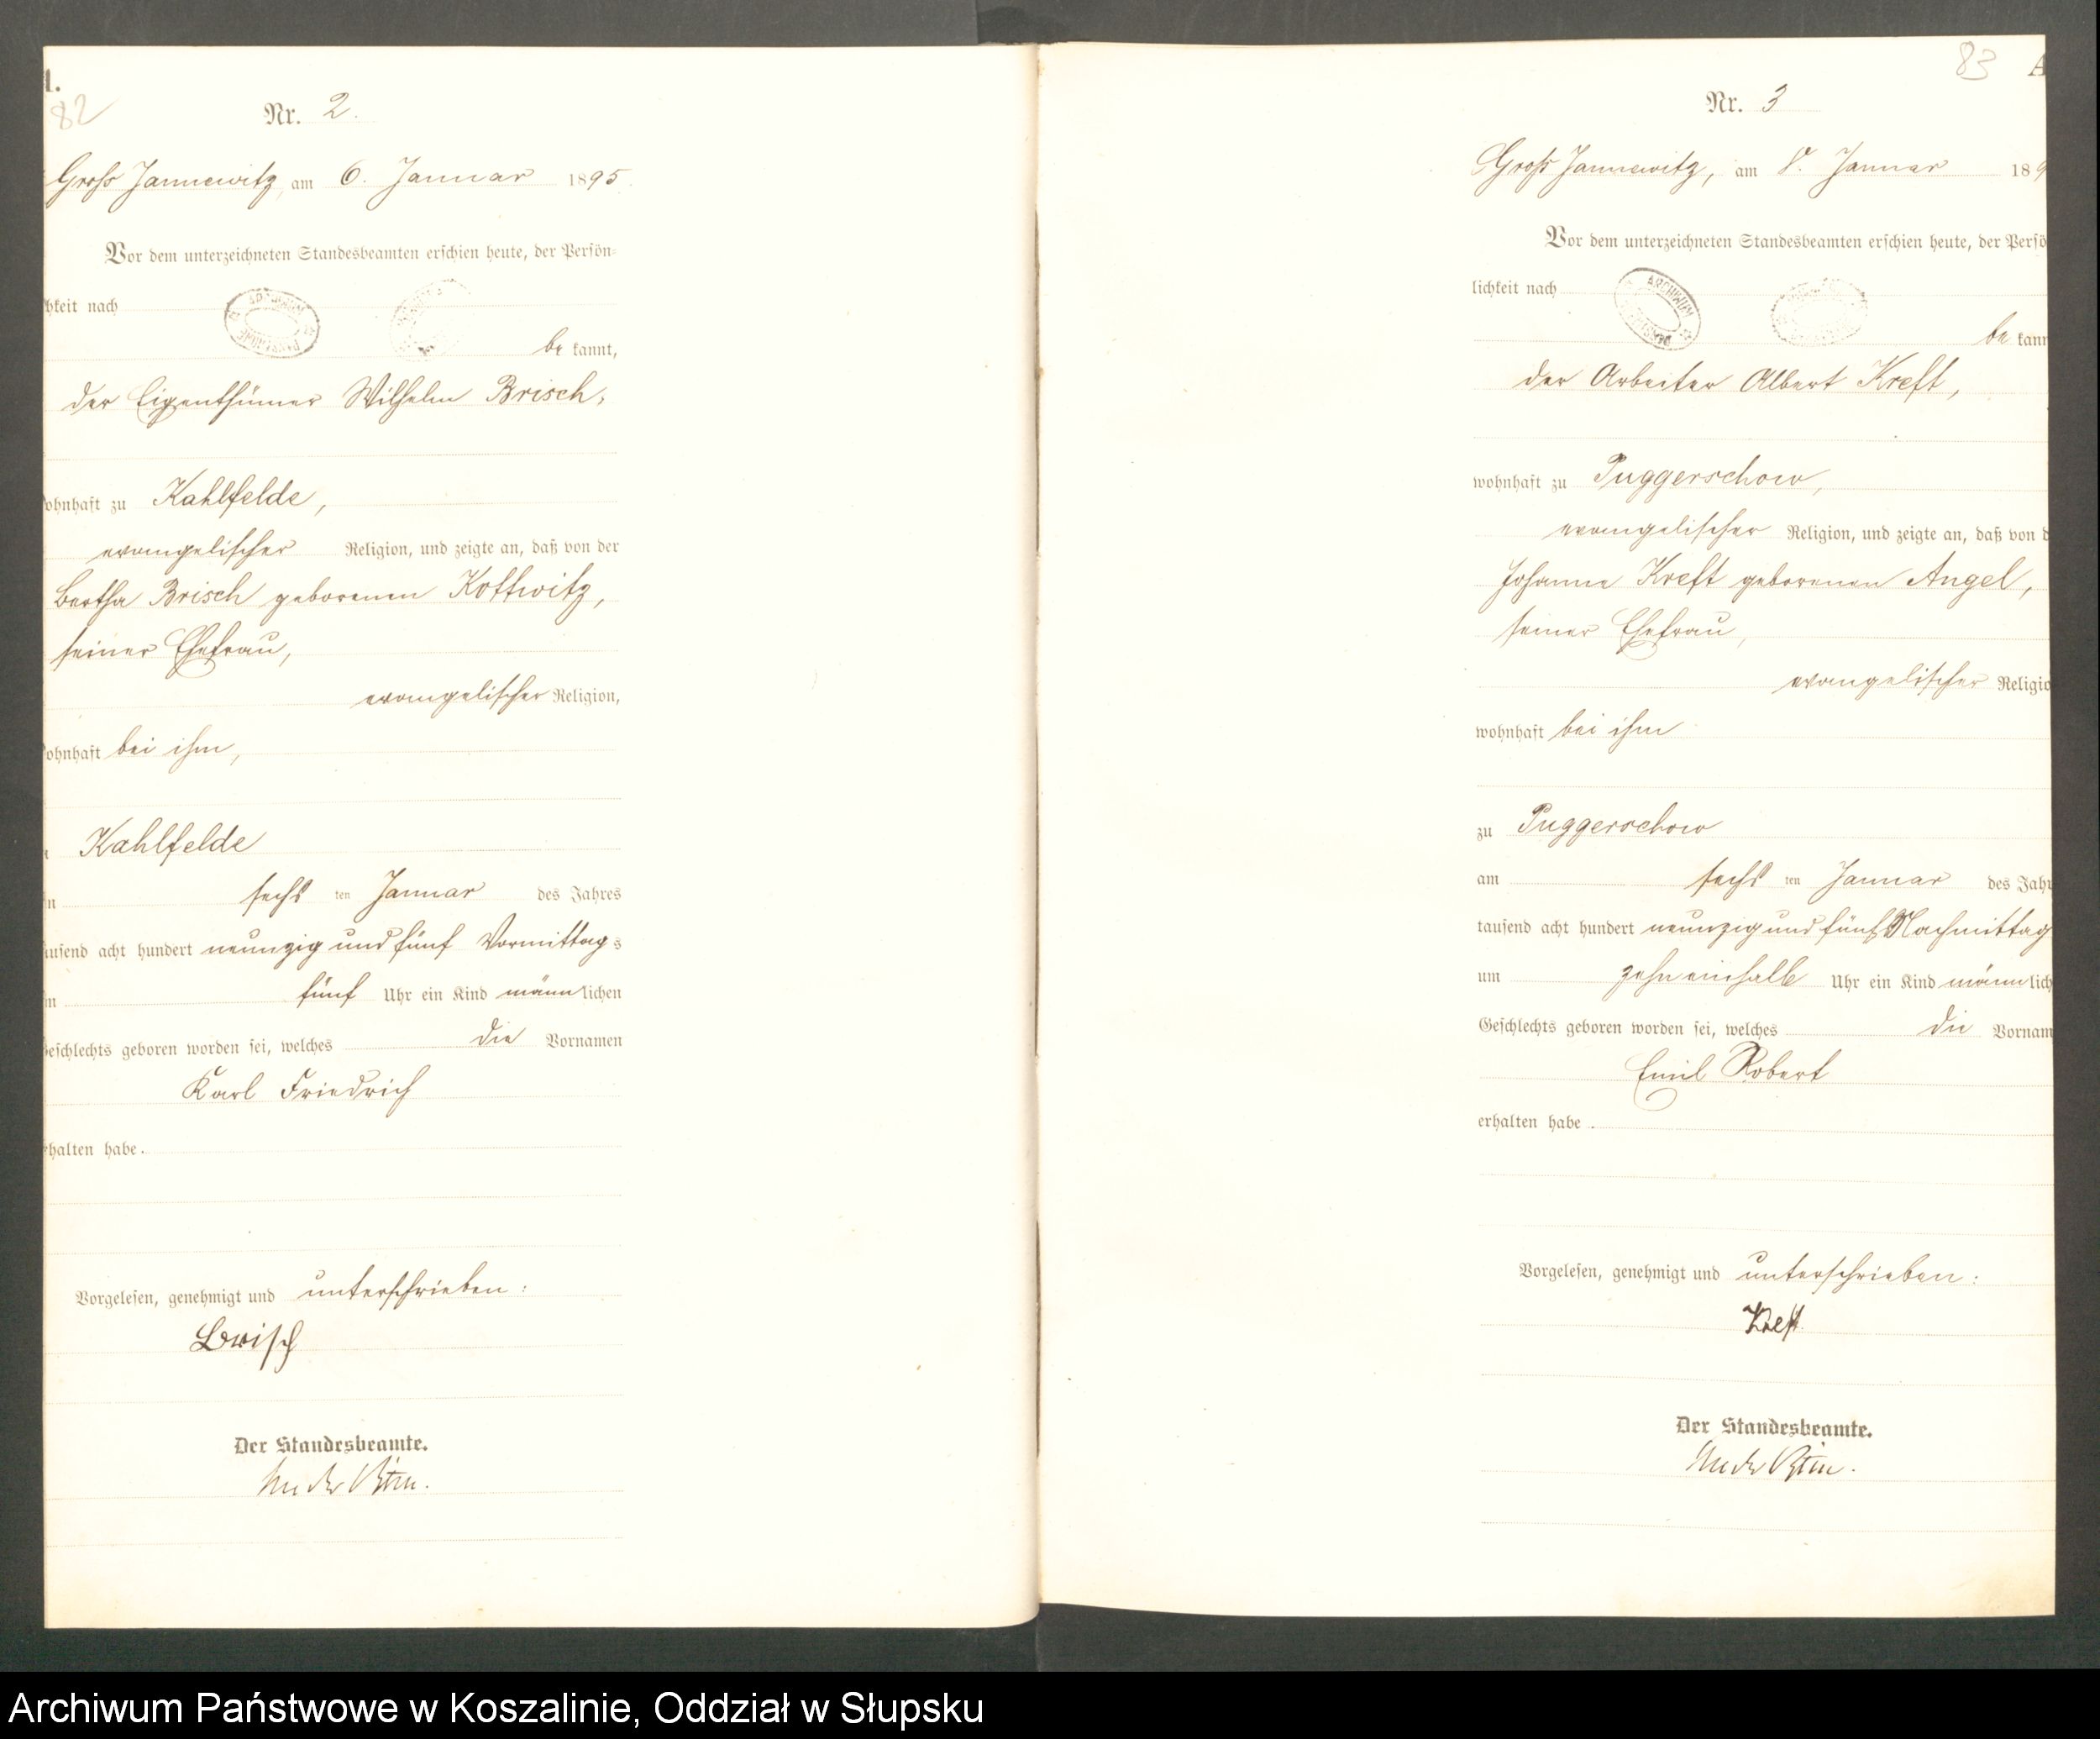 82
Nr. 2.
Gross Jannewitz, am 6. Januar 1895.
Vor dem unterzeichneten Standesbeamten erschien heute, der Persön=
hkeit nach
be kannt,
der Eigenthümer Wilhelm Brisch,
ohnhaft zu Kahlfelde,
evangelischer Religion, und zeigte an, daß von der
Bertha Brisch geborenen Kottwitz,
seiner Ehefrau,
evangelischer Religion,
ohnhaft bei ihm,
Kahlfelde
sechs ten Januar des Jahres
ausend acht hundert neunzig und fünf Vormittags
fünf Uhr ein Kind männlichen
eschlechts geboren worden sei, welches die Vornamen
Karl Friedrich
halten habe.
Vorgelesen, genehmigt und unterschrieben:
Brisch
Der Standesbeamte.
83
A
Nr. 3
Gross Jannewitz, am 8. Januar 189
Vor dem unterzeichneten Standesbeamten erschien heute, der Persö
lichkeit nach
ARCHIWUM
be kann
der Arbeiter Albert Kreft,
wohnhaft zu Puggerschow,
evangelischer Religion, und zeigte an, daß von d
Johanne Kreft geborenen Angel,
seiner Ehefrau,
evangelischer Religio
wohnhaft bei ihm
zu Puggerschow
am sechs ten Januar des Jahr
tausend acht hundert neunzig und fünf Nachmittag
um zehneinhalb Uhr ein Kind männlich
Geschlechts geboren worden sei, welches die Vornam
Emil Robert
erhalten habe.
Vorgelesen, genehmigt und unterschrieben:
Kreft
Der Standesbeamte.
Archiwum Państwowe w Koszalinie, Oddział w Słupsku